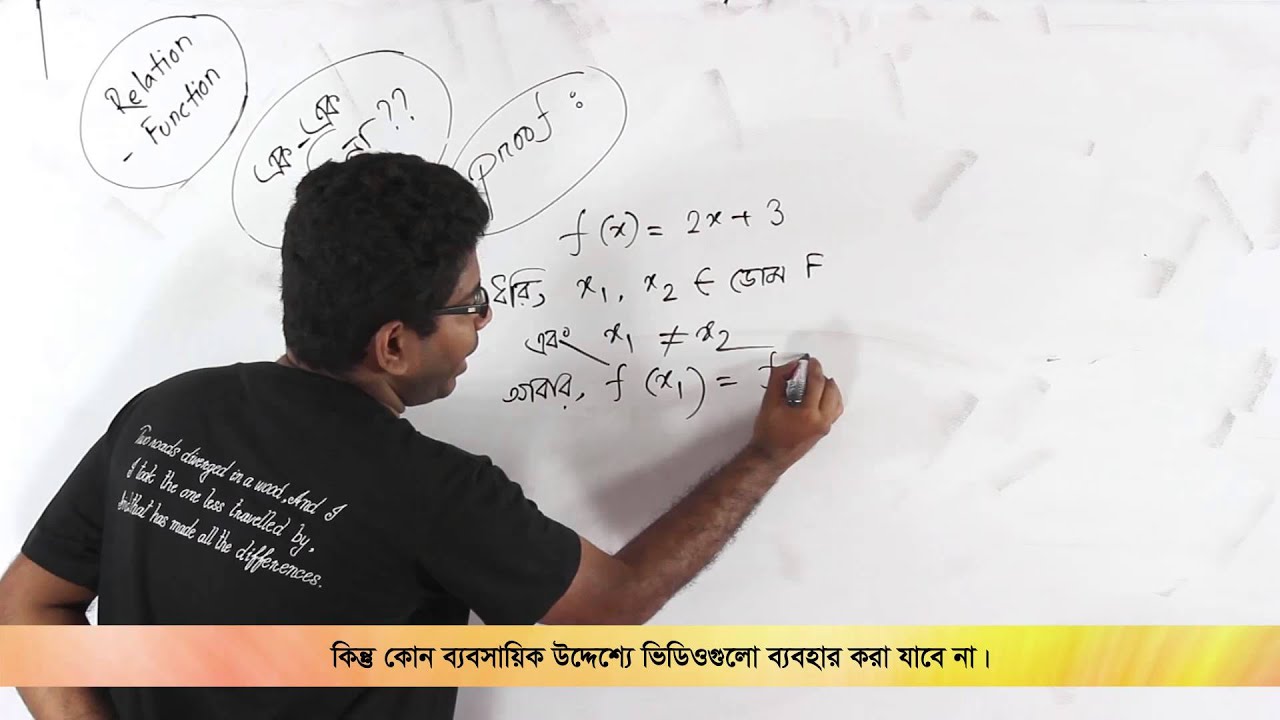 Relation
- Function
এক-এক
না ??
Proof :
f (x) = 2x + 3
ধরি, x₁, x₂ ∈ ডোম F
এবং x₁ ≠ x₂
আবার, f (x₁) = f
Two roads diverged in a wood, And I
I took the one less travelled by,
And that has made all the differences.
কিন্তু কোন ব্যবসায়িক উদ্দেশ্যে ভিডিওগুলো ব্যবহার করা যাবে না।